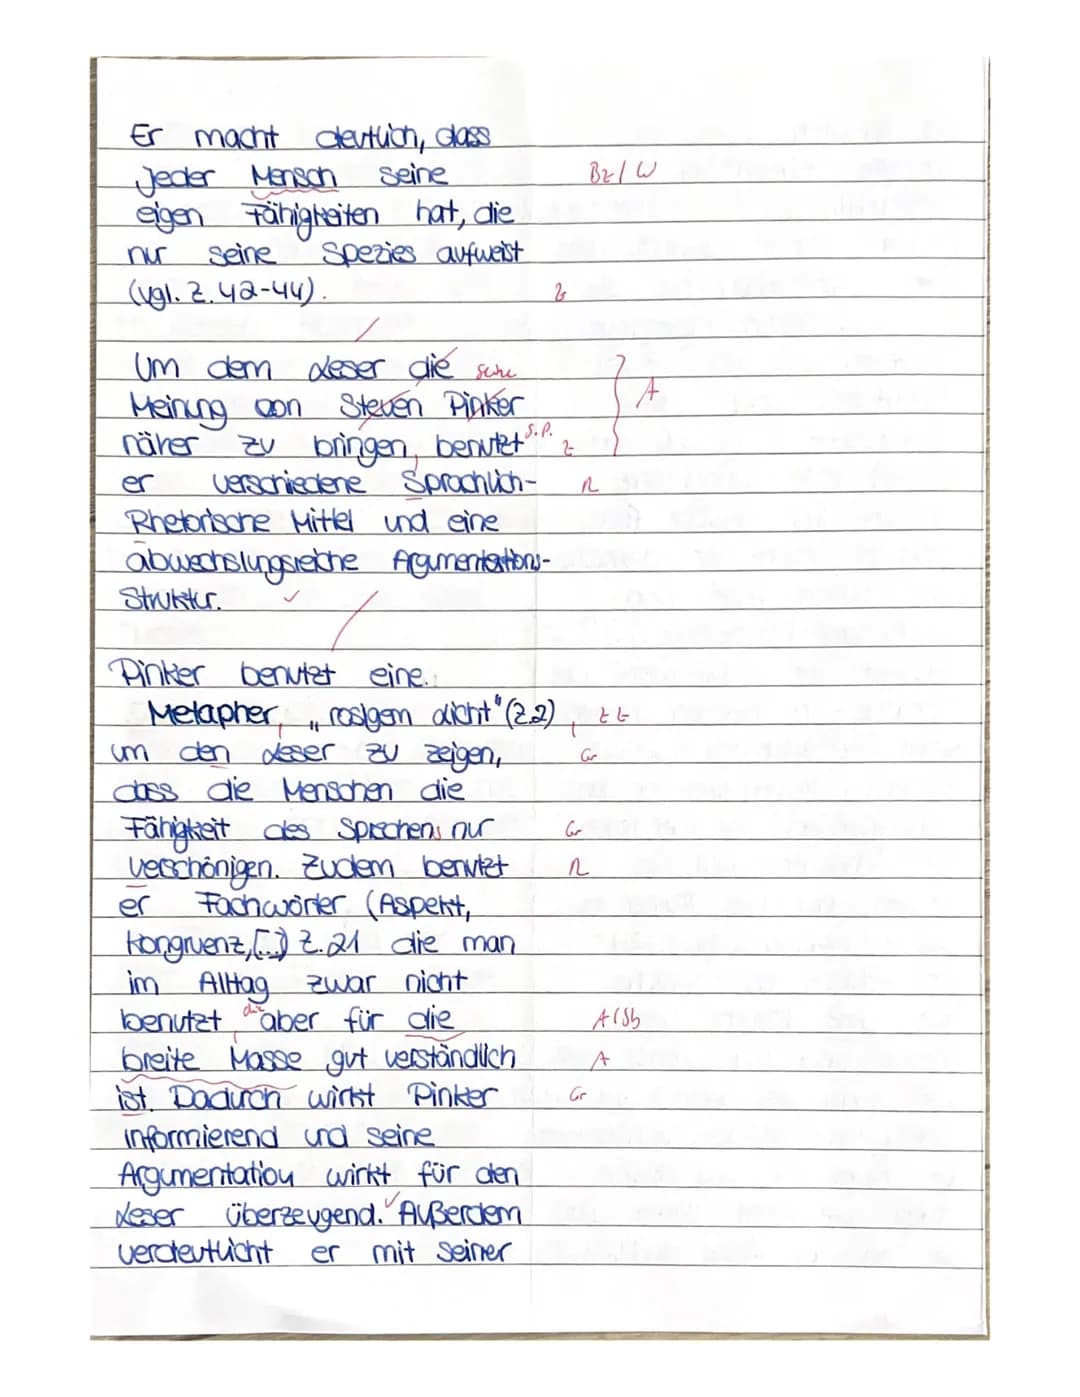 Er macht deutlich, dass
jeder Mensch seine Bz/W
eigen Fähigkeiten hat, die
nur seine Spezies aufweist
(vgl. Z. 42-44).
Um dem Leser die seine
Meinung von Steven Pinker A
näher zu bringen, benutzt S.P. Z
er verschiedene Sprachlich- R
Rhetorische Mittel und eine
abwechslungsreiche Argumentations-
Struktur. ✓
Pinker benutzt eine
Metapher, „rosigem Licht" (Z.2), ZZ
um den Leser zu zeigen, Gr
dass die Menschen die
Fähigkeit des Sprechens nur Gr
verschönigen. Zudem benutzt R
er Fachwörter (Aspekt,
Kongruenz,[..]) Z. 21 die man
im Alltag zwar nicht
benutzt, die aber für die A/Sb
breite Masse gut verständlich A
ist. Dadurch wirkt Pinker Gr
informierend und seine
Argumentation wirkt für den
Leser überzeugend. ✓ Außerdem
verdeutlicht er mit seiner